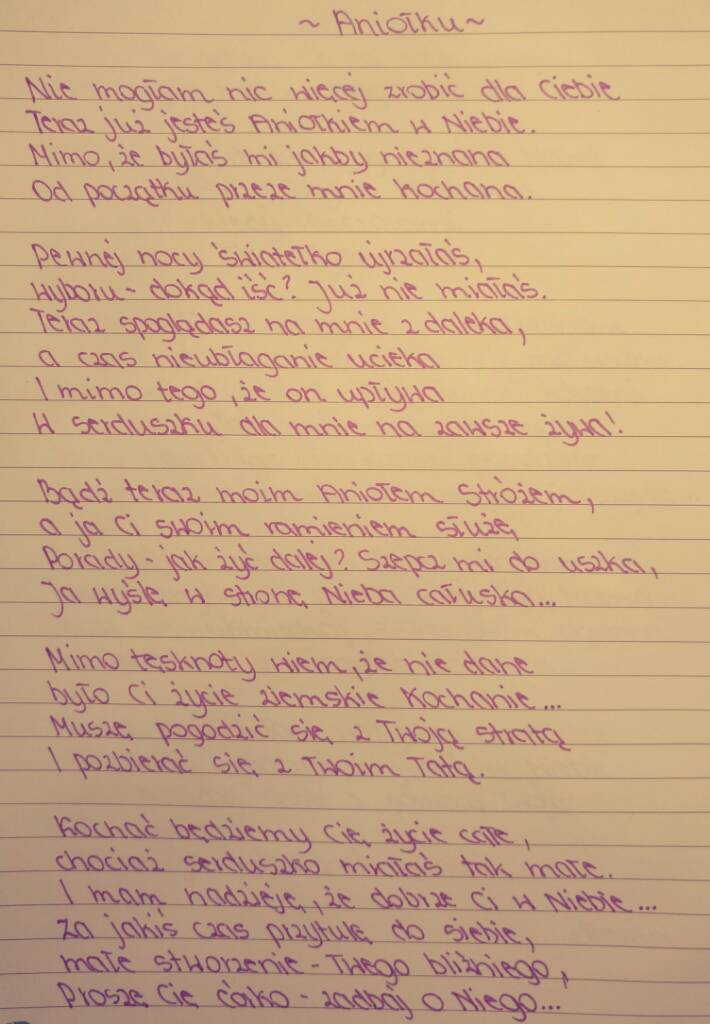 ~ Aniołku ~
Nie mogłam nic więcej zrobić dla Ciebie
Teraz już jesteś Aniołkiem w Niebie.
Mimo, że byłaś mi jakby nieznana
Od początku przeze mnie kochana.
Pewnej nocy światełko ujrzałaś,
wyboru - dokąd iść? Już nie miałaś.
Teraz spoglądasz na mnie z daleka,
a czas nieubłaganie ucieka
I mimo tego, że on upływa
W serduszku dla mnie na zawsze żywa!
Bądź teraz moim Aniołem Stróżem,
a ja Ci swoim ramieniem służę,
Porady - jak żyć dalej? Szepcz mi do uszka,
Ja wyślę w stronę Nieba całuska...
Mimo tęsknoty wiem, że nie dane
było Ci życie ziemskie Kochanie...
Muszę pogodzić się z Twoją stratą
I pozbierać się z Twoim Tatą.
Kochać będziemy Cię życie całe,
chociaż serduszko miałaś tak małe.
I mam nadzieję, że dobrze Ci w Niebie...
Za jakiś czas przytulę do siebie,
małe stworzenie - Twego bliźniego,
Proszę Cię Córko - zadbaj o Niego...